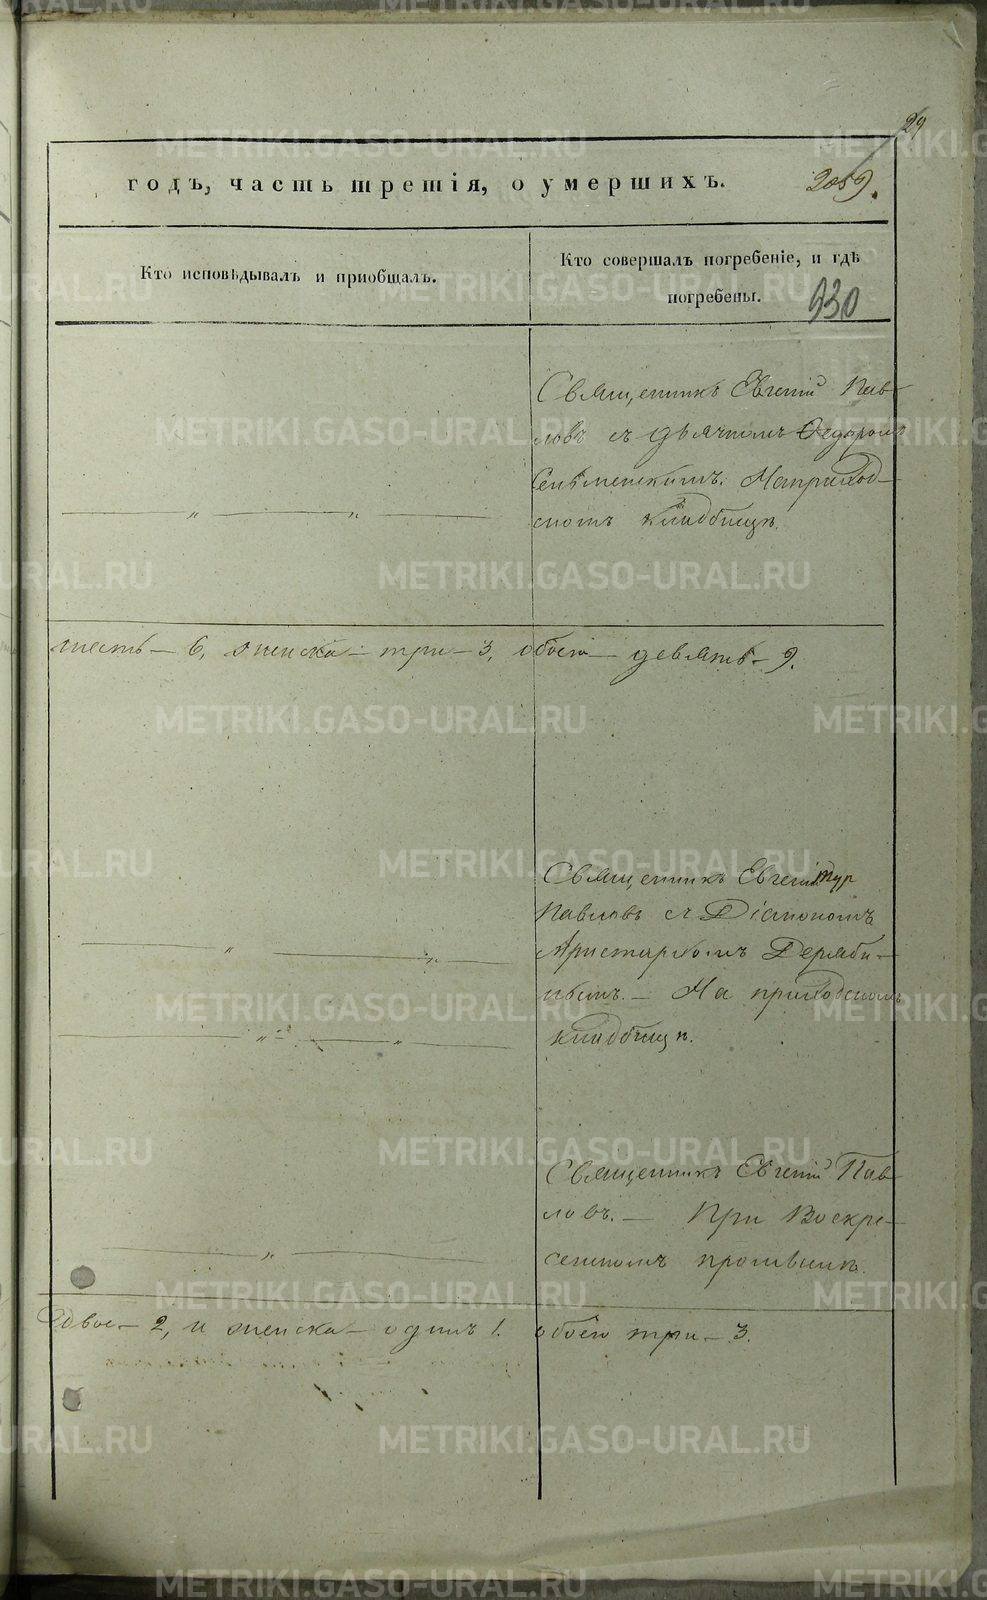 29
годъ, часть третія, о умершихъ.
2059.
Кто исповѣдывалъ и приобщалъ.
Кто совершалъ погребеніе, и гдѣ
погребены.
930
Священникъ Евгеній Пав-
ловъ съ дьячкомъ Федоромъ
На приход-
скомъ кладбищѣ.
шесть - 6, женска - три - 3, обоего - девять - 9.
Священникъ Евгеній
Павловъ съ Діакономъ
Аристархомъ Деряби-
нымъ. - На приходскомъ
кладбищѣ.
Священникъ Евгеній Пав-
ловъ. - При Воскре-
сенскомъ промыслѣ.
двое - 2, и женска - одинъ 1. обоего три - 3.
METRIKI.GASO-URAL.RU